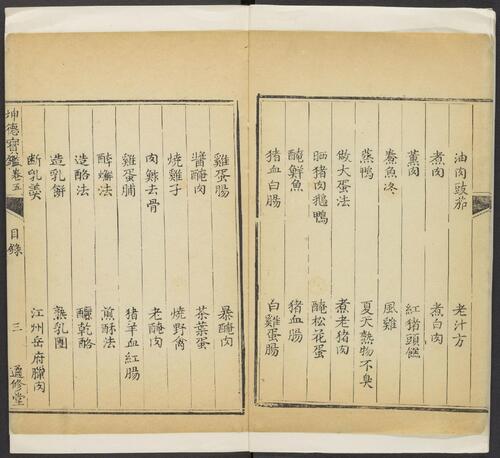 油肉豉茄 老汁方
煮肉 煮白肉
薰肉 紅猪頭
鲞魚凍 風雞
蒸鴨 夏天熱物不臭
做大蛋法 煮老猪肉
晒猪肉鵝鴨 醃松花蛋
醃鮮魚 猪血腸
猪血白腸 白雞蛋腸
雞蛋腸 暴醃肉
醬醃肉 茶葉蛋
燒雞子 燒野禽
肉鮝去骨 老醃肉
雞蛋脯 猪羊血紅腸
酵法 煎酥法
造酪法 釀乾酪
造乳餅 熬乳團
断乳羮 江州岳府臘肉
坤德寳鑑卷五 目錄 三 遵修堂